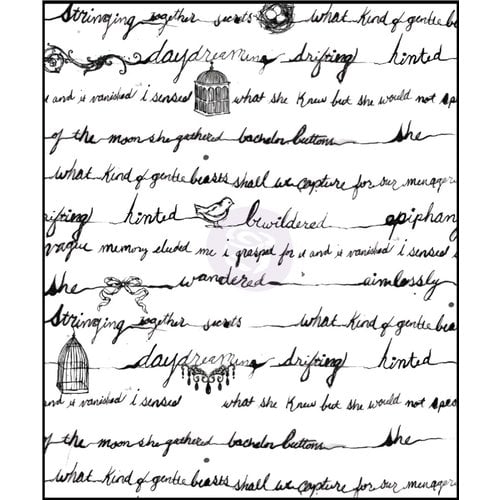 Stringing together secrets what kind of gentle bea
daydreaming drifting hinted
and is vanished i sensed what she knew but she would not spe
of the moon she gathered bachelor buttons she
what kind of gentle beasts shall we capture for our menager
drifting hinted bewildered epiphan
vague memory eluded me i grasped for it and is vanished i sensed i
she wandered aimlessly
Stringing together secrets what kind of gentle bea
daydreaming drifting hinted
and is vanished i sensed what she knew but she would not spe
of the moon she gathered bachelor buttons she
what kind of gentle beasts shall we capture for our menager